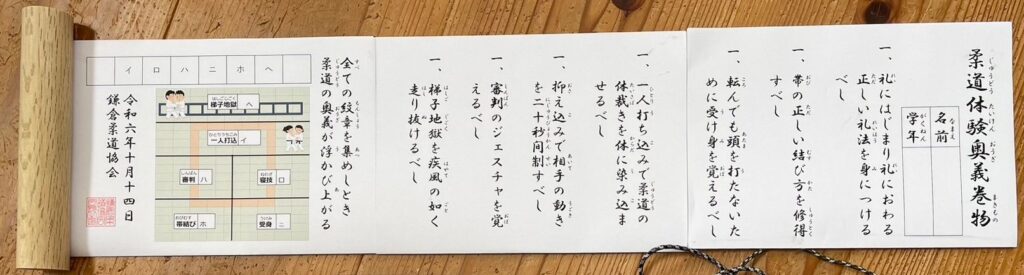 柔道体験奥義巻物
名前
学年
一、礼にはじまり礼におわる
正しい礼法を身につける
べし
一、帯の正しい結び方を修得
すべし
一、転んでも頭を打たないた
めに受け身を覚えるべし
一、一人打ち込みで柔道の
体裁きを体に染み込ま
せるべし
一、抑え込みで相手の動き
を二十秒間制すべし
一、審判のジェスチャを覚
えるべし
一、梯子地獄を疾風の如く
走り抜けるべし
全ての紋章を集めしとき
柔道の奥義が浮かび上がる
イ ロ ハ ニ ホ ヘ
はしごじごく
梯子地獄 ヘ
ひとりうちこみ
一人打込 イ
しんぱん
審判 ハ
ねわざ
寝技 ロ
おびむすび
帯結び ホ
うけみ
受身 ニ
令和六年十月十四日
鎌倉柔道協会